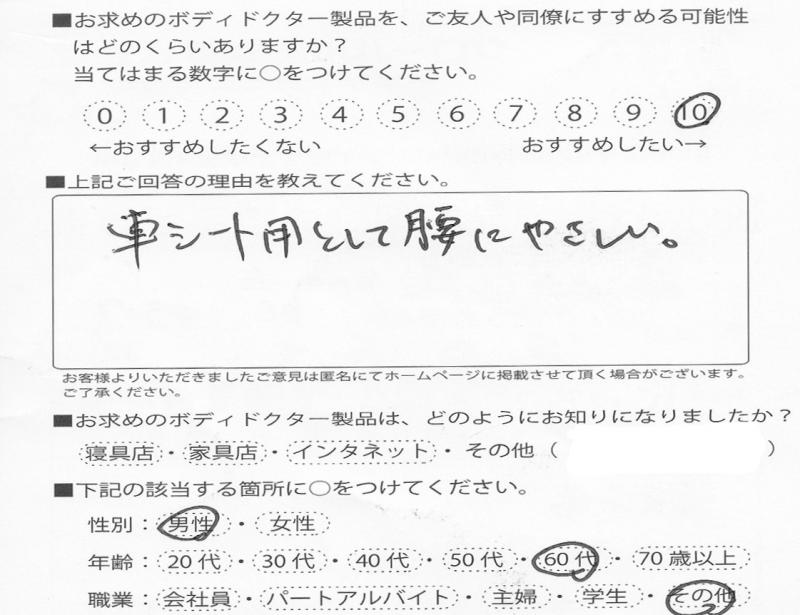 ■お求めのボディドクター製品を、ご友人や同僚にすすめる可能性
はどのくらいありますか？
当てはまる数字に○をつけてください。
0 1 2 3 4 5 6 7 8 9 10
←おすすめしたくない おすすめしたい→
■上記ご回答の理由を教えてください。
車シート用として腰にやさしい。
お客様よりいただきましたご意見は匿名にてホームページに掲載させて頂く場合がございます。
ご了承ください。
■お求めのボディドクター製品は、どのようにお知りになりましたか？
寝具店・家具店・インタネット・その他（ ）
■下記の該当する箇所に○をつけてください。
性別：男性・女性
年齢：20代・30代・40代・50代・60代・70歳以上
職業：会社員・パートアルバイト・主婦・学生・その他